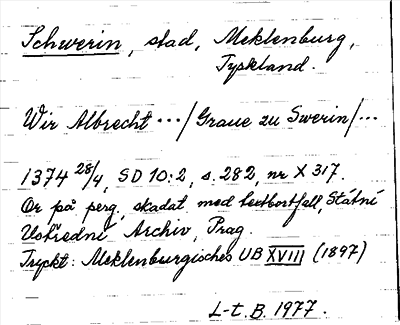 Schwerin, stad, Meklenburg,
Tyskland.
Wir Albrecht ... / Graue zu Swerin / ...
1374 28/4, SD 10:2, s. 282, nr X 317.
Or på perg, skadat med textbortfall, Státní
Ustřední Archiv, Prag.
Tryckt: Meklenburgisches UB XVIII (1897)
L-t. B. 1977.